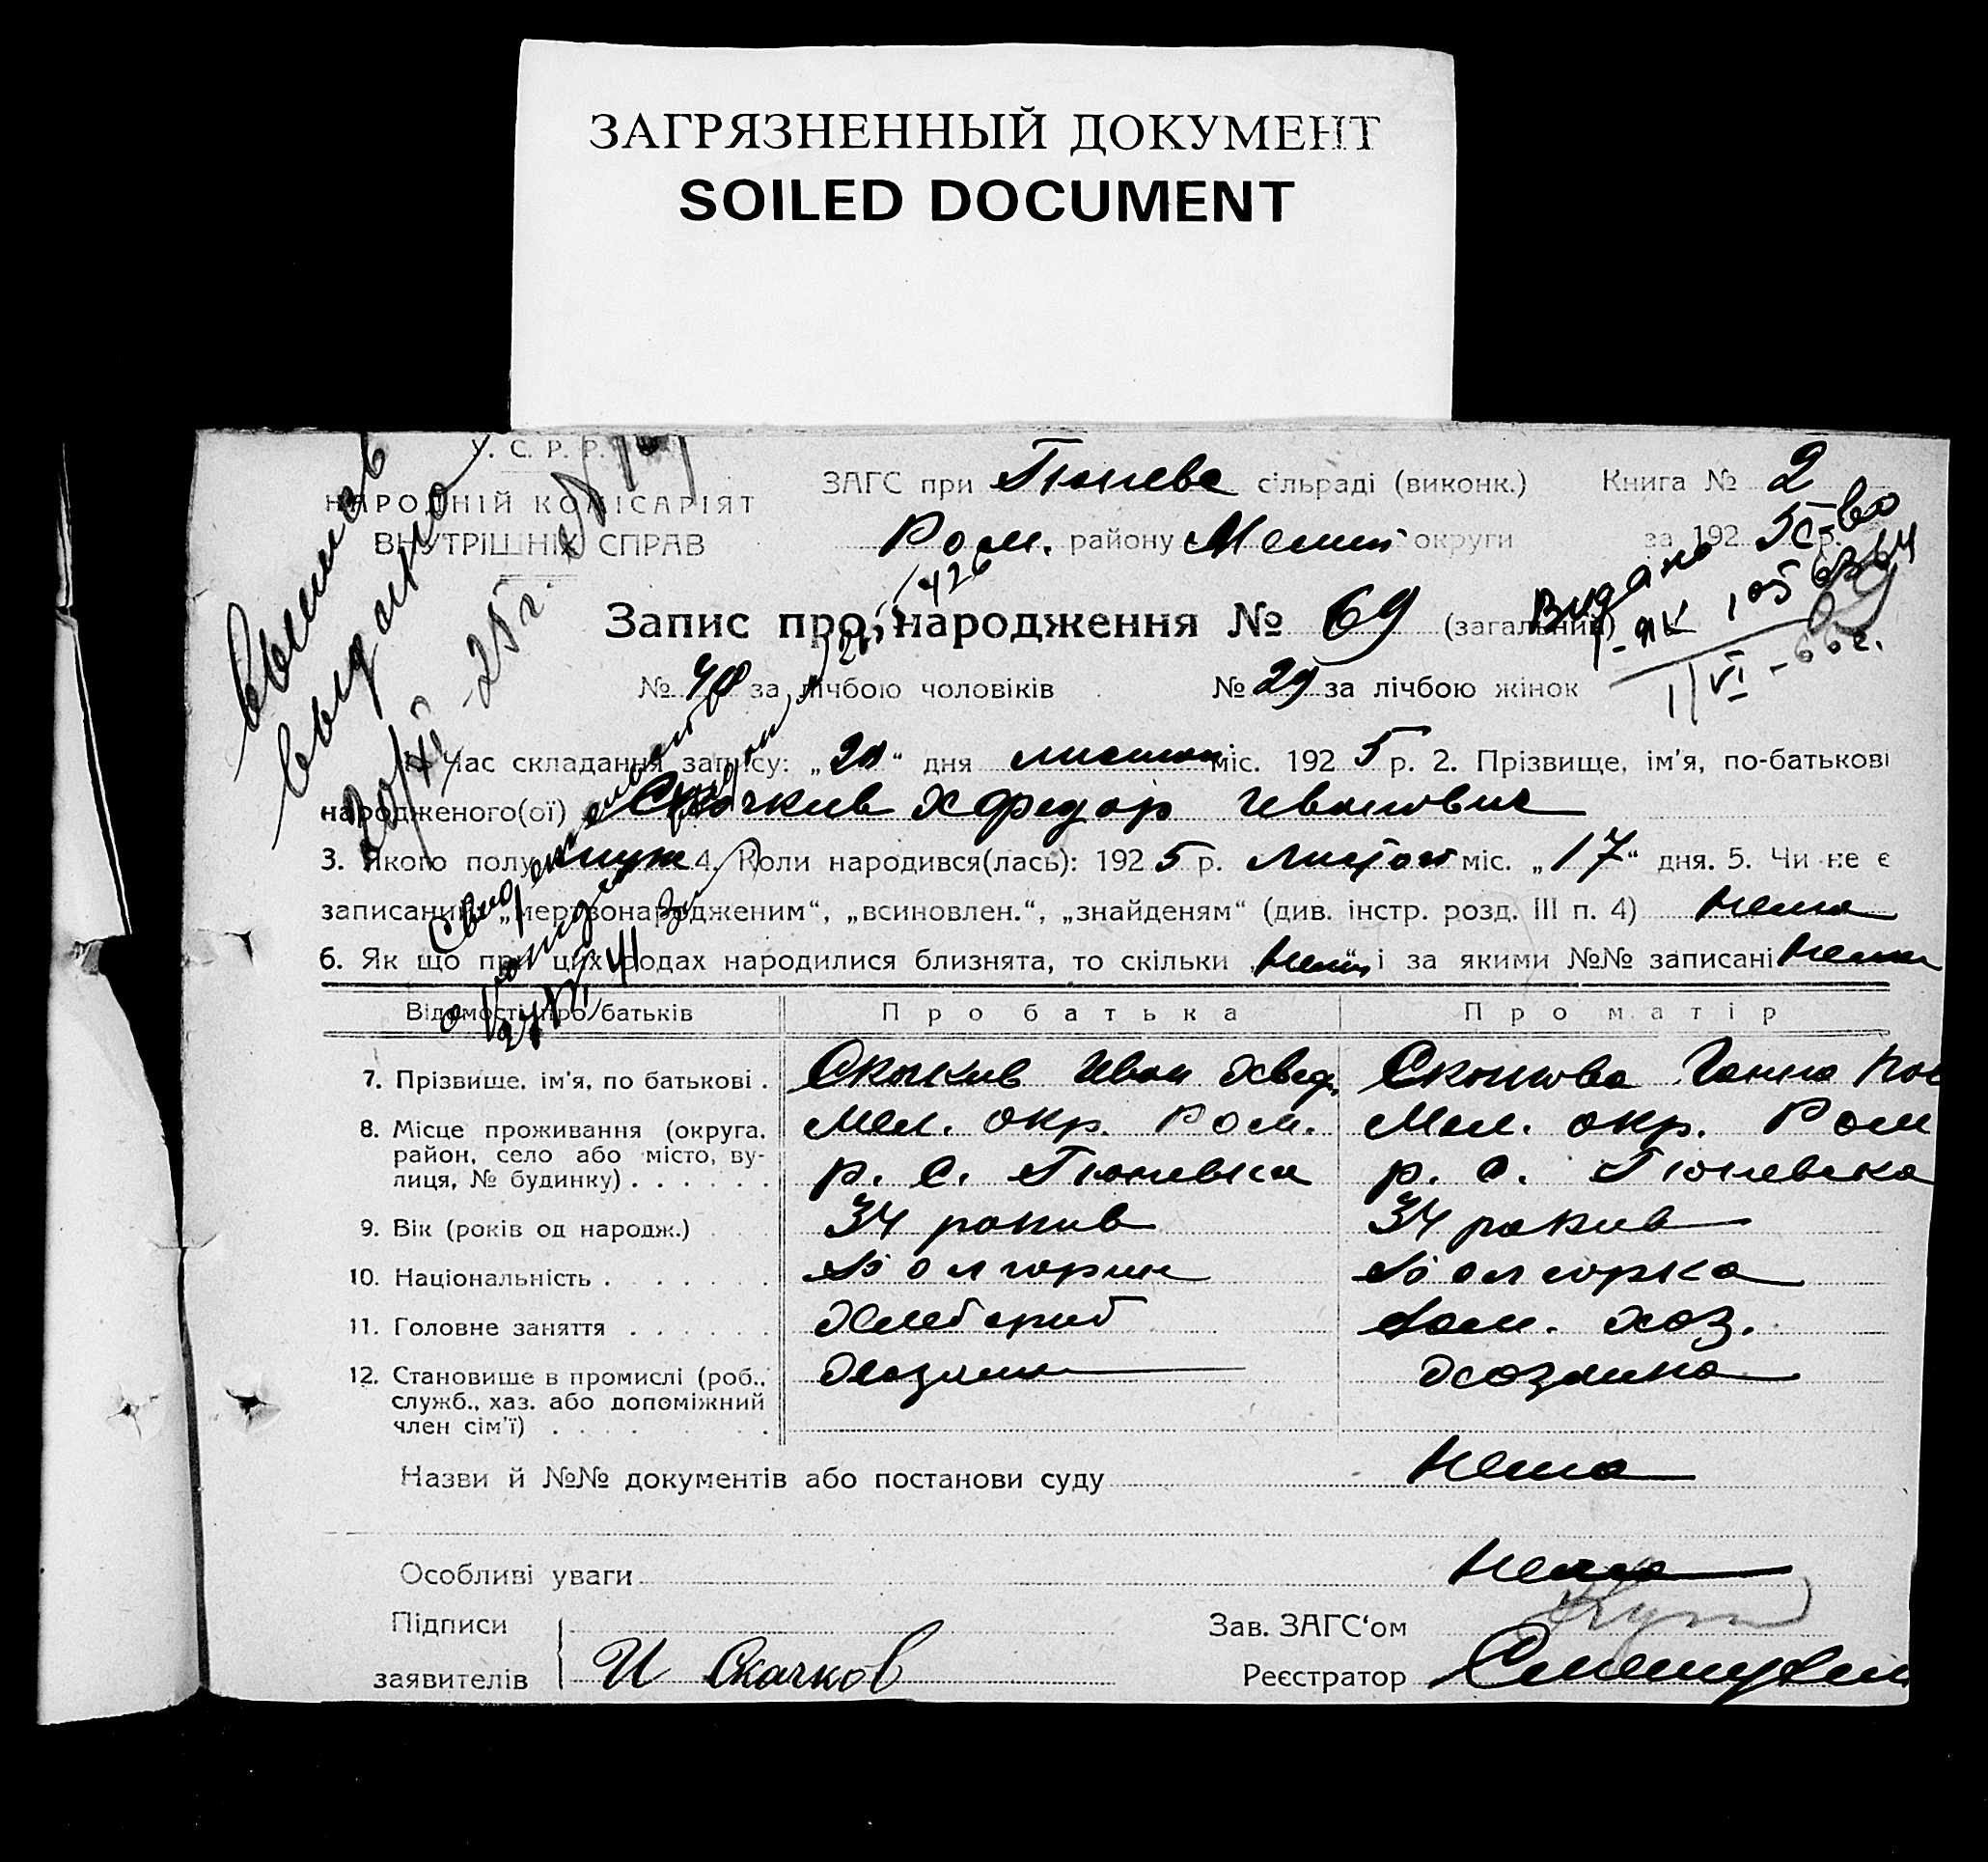 ЗАГРЯЗНЕННЫЙ ДОКУМЕНТ
SOILED DOCUMENT
У. С. Р. Р.
НАРОДНІЙ КОМІСАРІЯТ
ВНУТРІШНІХ СПРАВ
ЗАГС при Тюнева сільраді (виконк.)
Ром. району округи
Книга № 2
за 192 5 р.
Запис про народження № 69 (загальний)
№ 40 за лічбою чоловіків № 29 за лічбою жінок
Видано
1. Час складання запису: „20“ дня листопа міс. 192 5 р. 2. Прізвище, ім'я, по-батькові
народженого(ої) Скачкив Хфедор Иванович
3. Якого полу муж 4. Коли народився(лась): 192 5 р. Листоп міс. „17“ дня. 5. Чи не є
записаним „мертвонародженим“, „всиновлен.“, „знайденям“ (див. інстр. розд. III п. 4) нема
6. Як що при цих родах народилися близнята, то скільки нема і за якими №№ записані нема
Відомості про батьків Про батька Про матір
7. Прізвише, ім'я, по батькові . Скачкив Иван Хвед. Скачкова Ганна
8. Місце проживання (округа, район, село або місто, вулиця, № будинку) . . . . . .
Мел. окр. Ром. р. с. Тюневка
Мел. окр. Ром р. с. Тюневка
9. Вік (років од народж.) 34 рокив 34 рокив
10. Національність . . . . . . . Болгорин Болгорка
11. Головне заняття . . . . . . Хлебороб Дом. хоз.
12. Становише в промислі (роб., служб., хаз. або допоміжний член сім'ї) . . . .
Хозяин Хозяика
Назви й №№ документів або постанови суду нема
Особливі уваги нема
Підписи
заявителів И Скачков
Зав. ЗАГС‘ом
Реєстратор
Выпись
выдано
20/XI - 25 г.